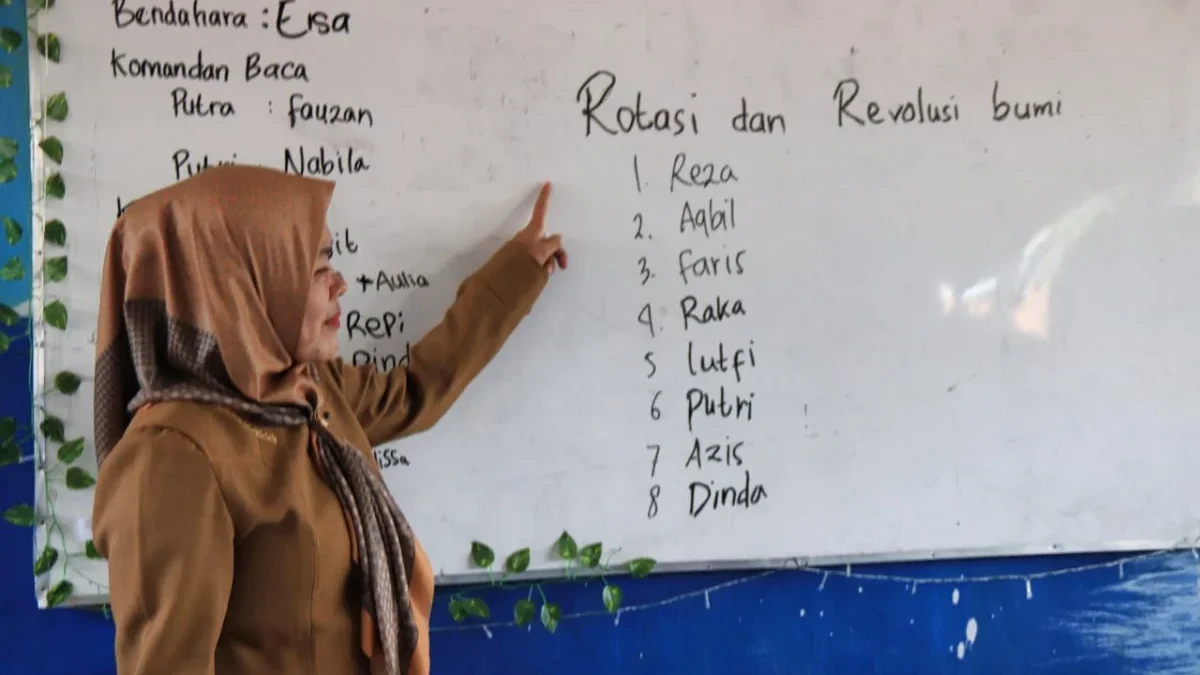 Bendahara : Ersa
Komandan Baca
Putra : fauzan
Putri Nabila
+Aulia
Repi
Rotasi dan Revolusi bumi
1. Reza
2. Aqbil
3. faris
4. Raka
5 lutfi
6 Putri
7 Azis
8 Dinda